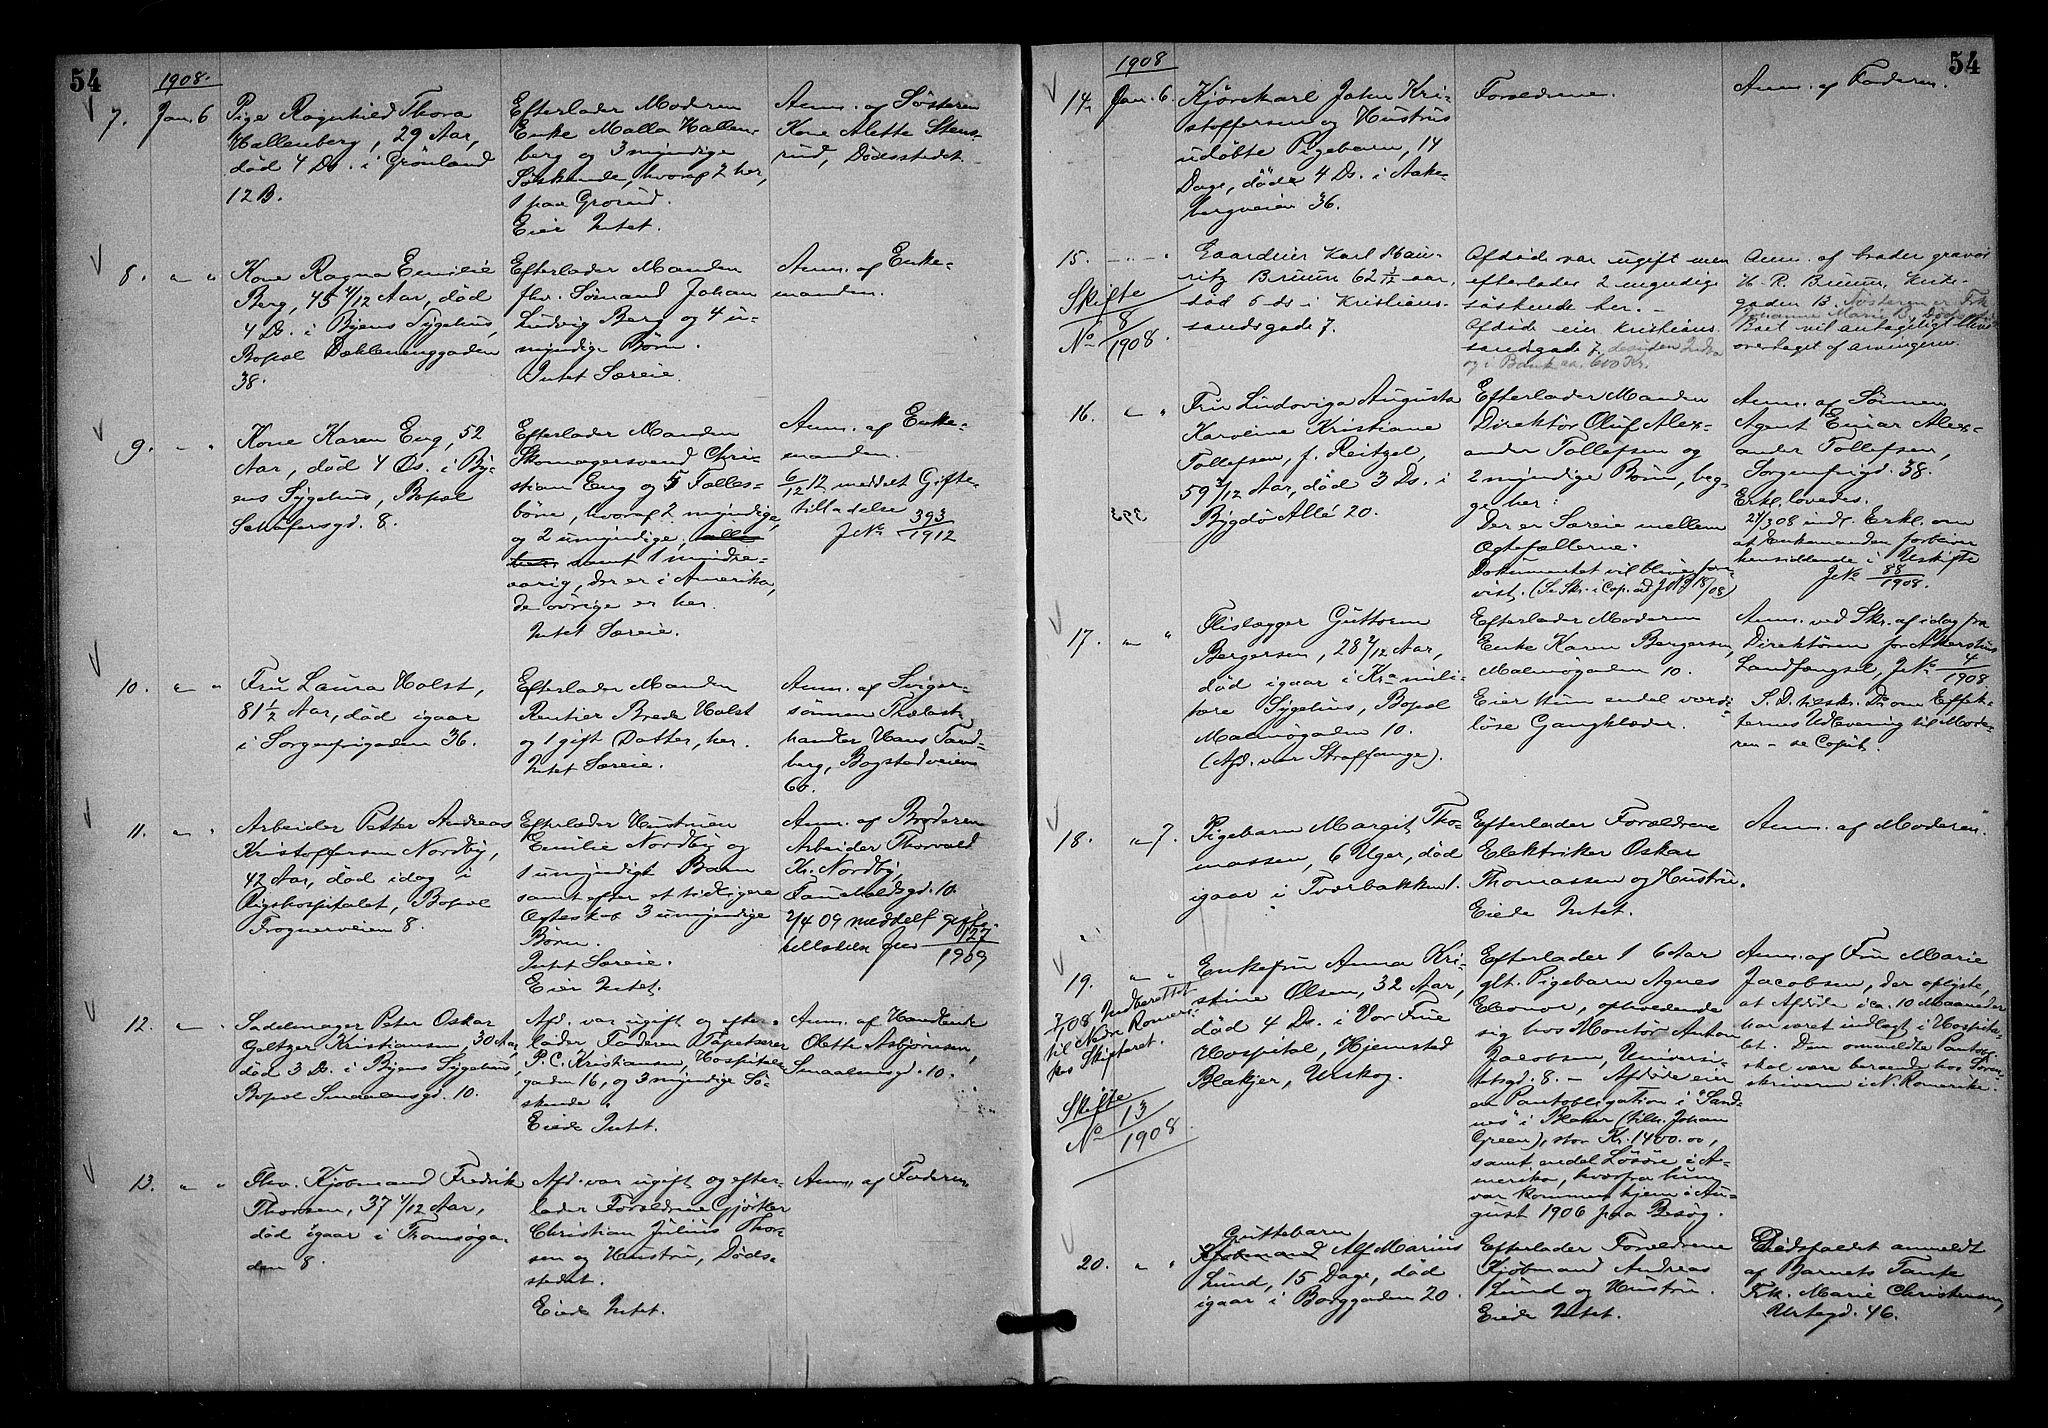 54
1908.
7. Jan. 6
Pige Ragnhild Thora
Hallenberg, 29 Aar,
død 4 Ds. i Grønland
12 B.
Efterlader Moderen
Enke Malla Hallen-
berg og 3 myndige
Søskende, hvoraf 2 her,
1 paa Grorud.
Eier Intet.
Anm. af Søsteren
Kone Alette Stens-
rud, Dødsstedet
8. " "
Kone Ragna Emilie
Berg, 45 4/12 Aar, død
4 Ds. i Byens Sygehus,
Bopæl Dælenenggaden
38.
Efterlader Manden
fhv. Sømand Johan
Ludvig Berg og 4 u-
myndige Børn.
Intet Særeie.
Anm. af Enke-
manden.
9. " "
Kone Karen Eng, 52
Aar, død 4 Ds. i By-
ens Sygehus, Bopæl
Schäfersgd. 8.
Efterlader Manden
Skomagersvend Chri-
stian Eng og 5 Fælles-
børn, hvoraf 2 myndige,
og 2 umyndige, alle
her, samt 1 mindre-
aarig, der er i Amerika,
de øvrige er her.
Intet Særeie.
Anm. af Enke-
manden.
6/12 12 meddelt Gifte-
tilladelse
J№ 393/1912
10. " "
Fru Laura Holst,
81 1/2 Aar, død igaar
i Sorgenfrigaden 36.
Efterlader Manden
Rentier Brede Holst
og 1 gift Datter, her.
Intet Særeie.
Anm. af Sviger-
sønnen Trælast-
handler Hans Sand-
berg, Bogstadveien
60.
11. " "
Arbeider Petter Andreas
Kristoffersen Nordby,
42 Aar, død idag i
Rigshospitalet, Bopæl
Frognerveien 8.
Efterlader Hustruen
Emilie Nordby og
1 umyndigt Barn
samt efter et tidligere
Ægteskab 3 umyndige
Børn.
Intet Særeie.
Eier Intet.
Anm. af Broderen
Arbeider Thorvald
Kr. Nordby,
Fauchaldsgd. 10.
2/4 09 meddelt gifte-
tilladelse J№ 127/1909
12. " "
Sadelmager Peter Oskar
Geltzer Kristiansen, 30 Aar,
død 3 Ds. i Byens Sygehus,
Bopæl Smaalensgd. 10.
Afd. var ugift og efter-
lader Faderen Tapetserer
P. C. Kristiansen, Hospitals-
gaden 16, og 3 myndige Sø-
skende.
Eiede Intet.
Anm. af Handlende
Olette Asbjørnsen,
Smaalensgd. 10.
13. " "
Fhv. Kjøbmand Fredrik
Thorsen, 37 4/12 Aar,
død igaar i Tromsøga-
den 8.
Afd. var ugift og efter-
lader Forældrene Gjørtler
Christian Julius Thor-
sen og Hustru, Døds-
stedet.
Eiede Intet.
Anm. af Faderen
54
1908
14. Jan. 6.
Kjørekarl John Kri-
stoffersen og Hustrus
udøbte Pigebarn, 14
Dage, død 4 Ds. i Aake-
bergveien 36.
Forældrene.
Anm. af Faderen.
15. " "
Skifte
№ 8/1908.
Gaardeier Karl Mau-
ritz Bruun 62 1/2 aar,
død 5 ds i Kristian-
sandsgade 7.
Afdøde var ugift men
efterlader 2 myndige
søskende her. -
Afdøde eier Kristian-
sandsgade 7, desuden Indbo
og i Bank ca. 600 Kr.
Anm. af broder gravør
H. R. Bruun, Kirke-
gaden 13. Søsteren er Frk
Johanne Marie B., Dødsstedet
Boet vil antagelig blive
overtaget af arvingerne.
16. " "
Fru Ludoviga Augusta
Karoline Kristiane
Tollefsen, f. Reitzel,
59 2/12 Aar, død 3 Ds. i
Bygdø Allé 20.
Efterlader Manden
Direktør Oluf Alex-
ander Tollefsen og
2 myndige Børn, beg-
ge her.
Der er Særeie mellem
Ægtefællerne.
Dokumentet vil blive fore-
vist. (Se Skr. i Cop. ad J№ B 18/08)
Anm. af Sønnen
Agent Einar Alex-
ander Tollefsen,
Sorgenfrigd. 38.
Erkl. lovedes.
24/3 08 indl. Erkl. om
at Enkemanden forbliver
hensiddende i Uskifte
J№ 88/1908.
17. " "
Flislægger Guttorm
Bergersen, 28 2/12 Aar,
død igaar i Kra mili-
tære Sygehus, Bopæl
Malmøgaden 10.
(Afd. var Straffange).
Efterlader Moderen
Enke Karen Bergersen,
Malmøgaden 10.
Eier kun endel værdi-
løse Gangklæder.
Anm. ved Skr. af idag fra
Direktøren for Akershus
Landfængsel, J№ 4/1908
S. D. tilskr. Dir om Effek-
ternes Udlevering til Mode-
ren - se Copib.
18. " 7.
Pigebarn Margit Tho-
massen, 6 Uger, død
igaar i Tværbakken 1.
Efterlader Forældrene
Elektriker Oskar
Thomassen og Hustru.
Eiede Intet.
Anm. af Moderen.
19. " "
7/1 08 Indberettet
til Nedre Romeri-
kes Skifteret.
Skifte
№ 13/1908.
Enkefru Anna Kri-
stine Olsen, 32 Aar,
død 4 Ds. i Vor Frue
Hospital, Hjemsted
Blakjer, Urskog.
Efterlader 1 6 Aar
glt. Pigebarn Agnes
Eleonore, opholdende
sig hos Montør Anton
Jacobsen, Universi-
tetsgd. 8. - Afdøde eier
en Pantobligation i "Sand-
nes" i Blaker (tilh. Johan
Green), stor Kr. 1400.00,
samt endel Løsøre i A-
merika, hvorfra hun
var kommen hjem i Au-
gust 1906 paa Besøg.
Anm. af Fru Marie
Jacobsen, der oplyste,
at Afdøde i ca. 10 Maaneder
har været indlagt i Hospita-
let. Den ommeldte Pantobl.
skal være beroende hos Soren-
skriveren i N. Romerike.
20. " "
Guttebarn
Kjøbmand Alf Marius
Lund, 15 Dage, død
igaar i Borggaden 20.
Efterlader Forældrene
Kjøbmand Andreas
Lund og Hustru.
Eiede Intet.
Dødsfaldet anmeldt
af Barnets Tante
Frk. Marie Christensen,
Urtegd. 46.